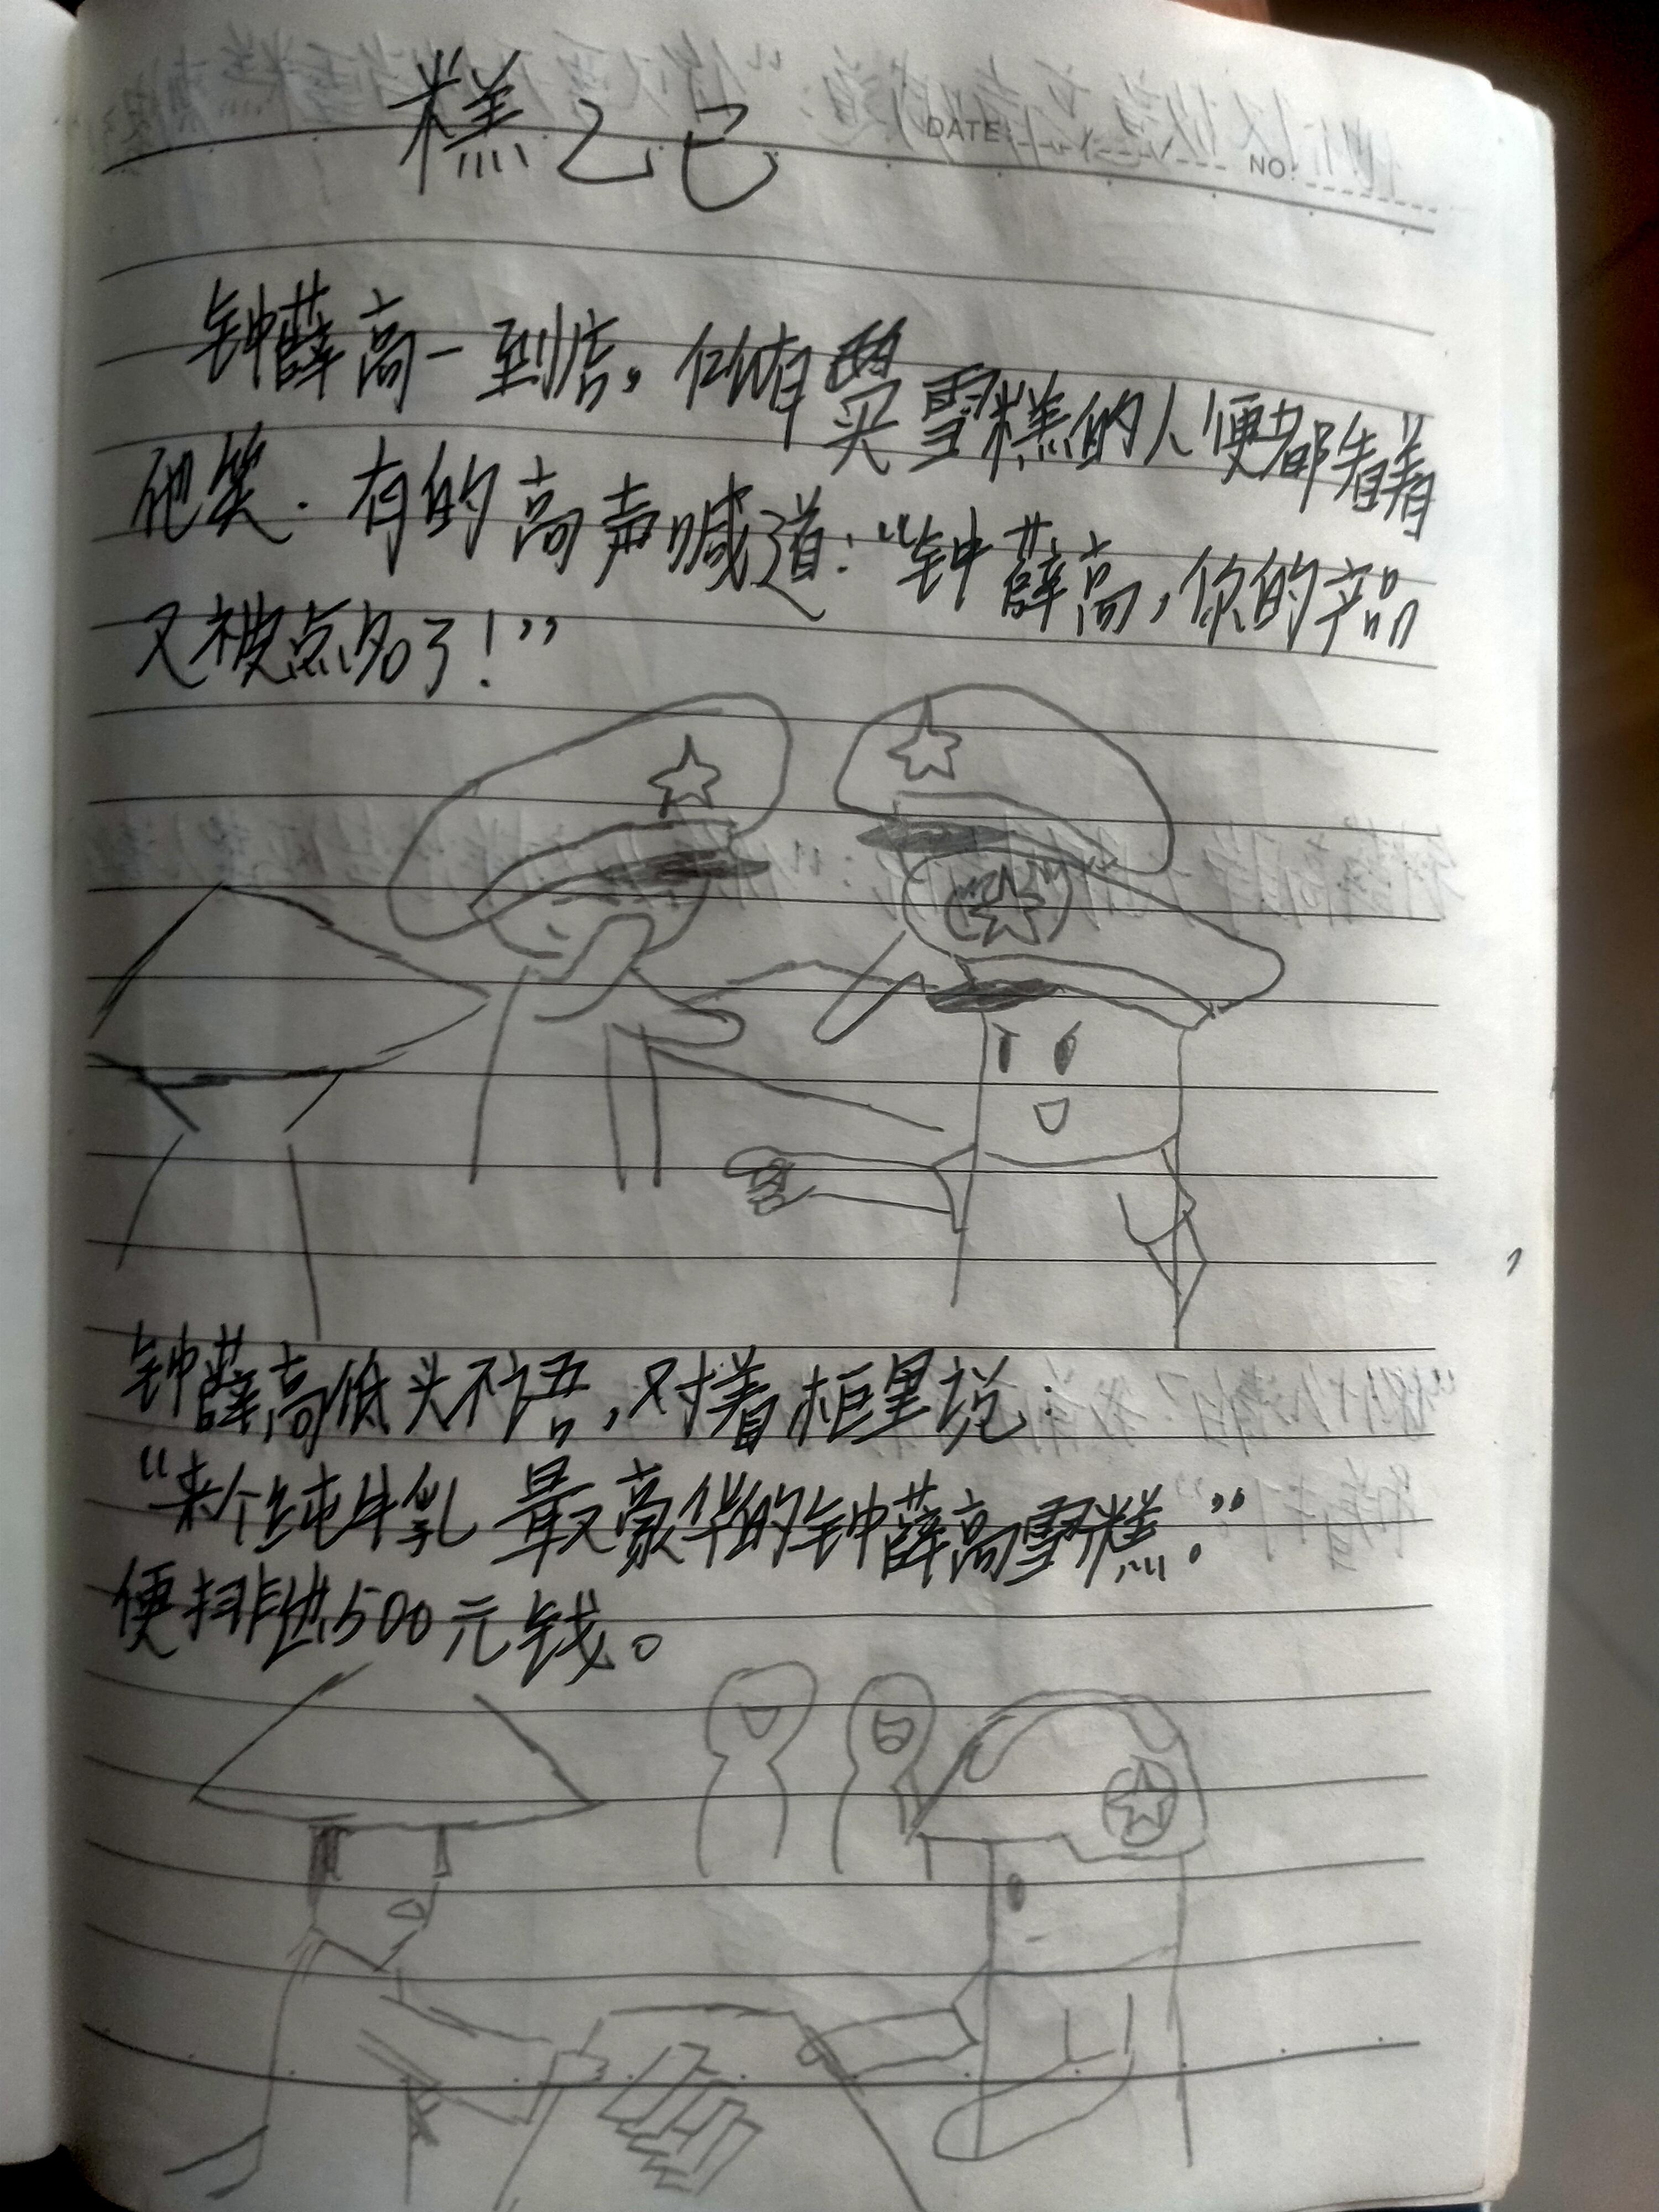 糕乙己
DATE:
NO:
钟薛高一到店,所有买雪糕的人便都看着
他笑.有的高声喊道:“钟薛高,你的产品
又被点名了!”
钟薛高低头不语,对着柜里说:
“来个纯牛乳 最豪华的钟薛高雪糕.”
便排出500元钱。